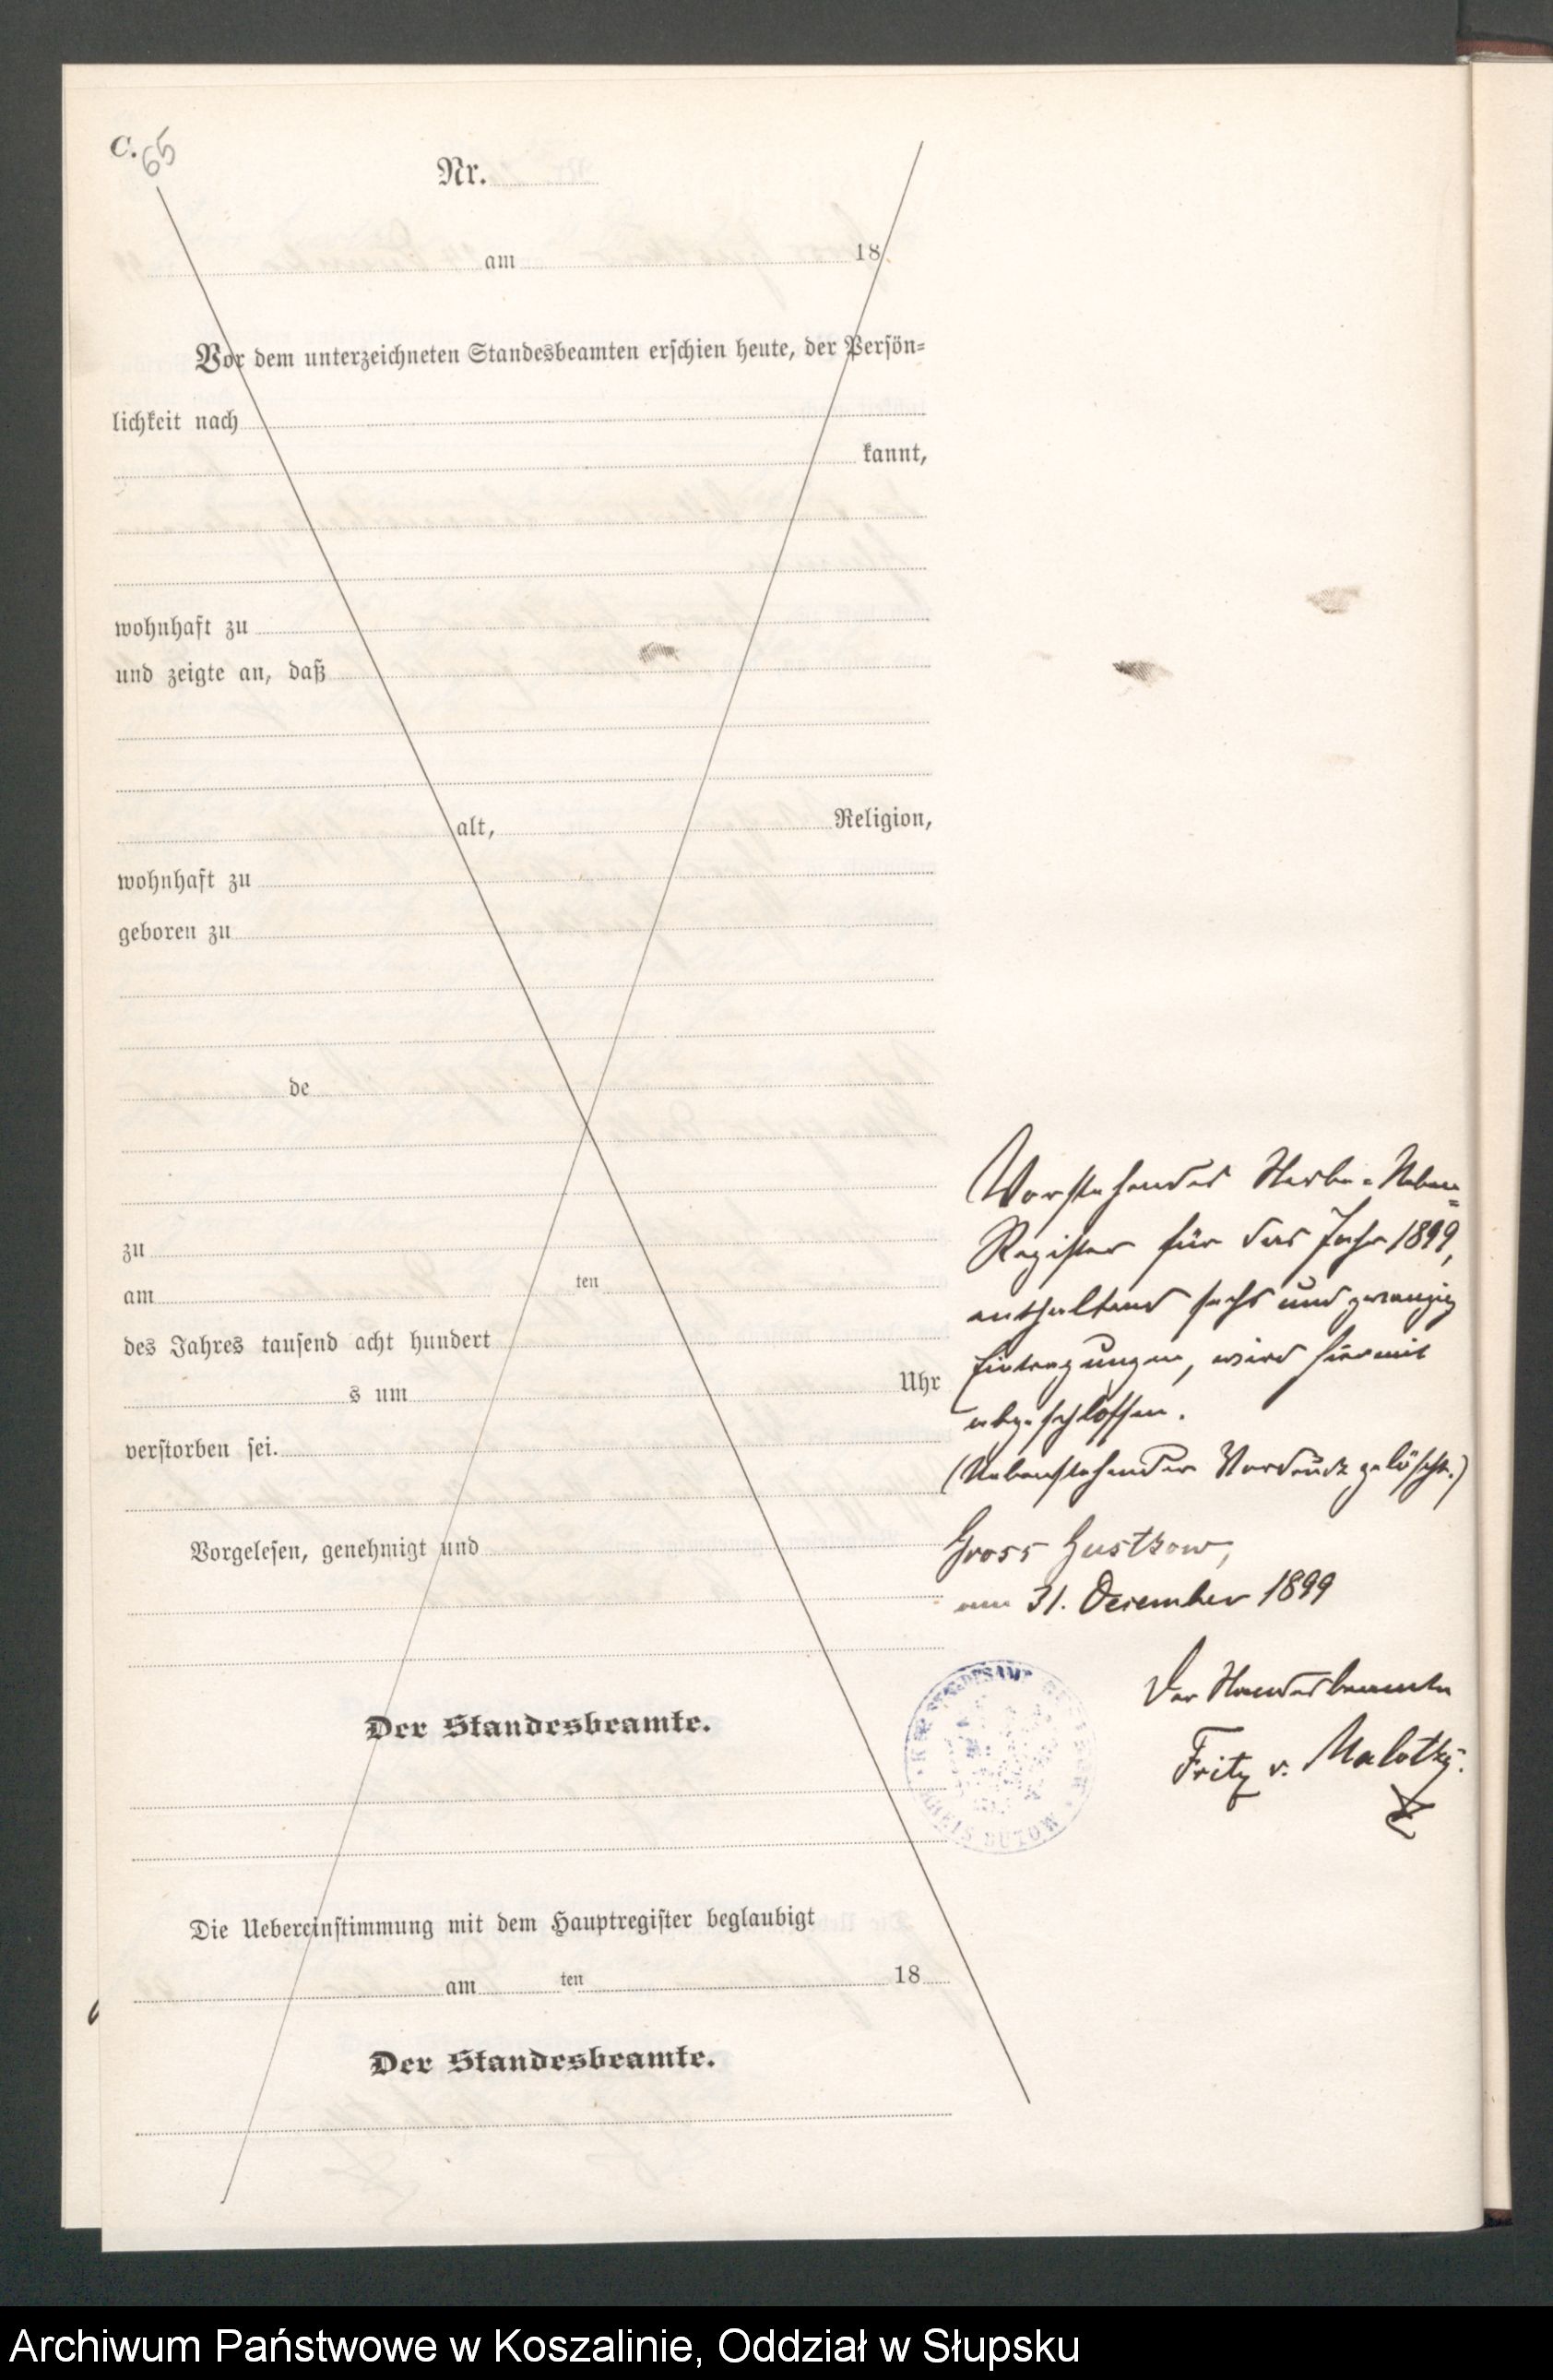 C.
65
Nr.
am 18
Vor dem unterzeichneten Standesbeamten erschien heute, der Persön=
lichkeit nach
kannt,
wohnhaft zu
und zeigte an, daß
alt, Religion,
wohnhaft zu
geboren zu
de
zu
am ten
des Jahres tausend acht hundert
s um Uhr
verstorben sei.
Vorgelesen, genehmigt und
Der Standesbeamte.
Die Uebereinstimmung mit dem Hauptregister beglaubigt
am ten 18
Der Standesbeamte.
Vorstehendes Sterbe-Neben=
Register für das Jahr 1899,
enthaltend sechs und zwanzig
Eintragungen, wird hiermit
abgeschlossen.
(Nebenstehender Vordruck gelöscht.)
Gross Gustkow,
am 31. December 1899
Der Standesbeamte
Fritz v. Malotky.
STANDESAMT
KREIS BUTOW
Archiwum Państwowe w Koszalinie, Oddział w Słupsku